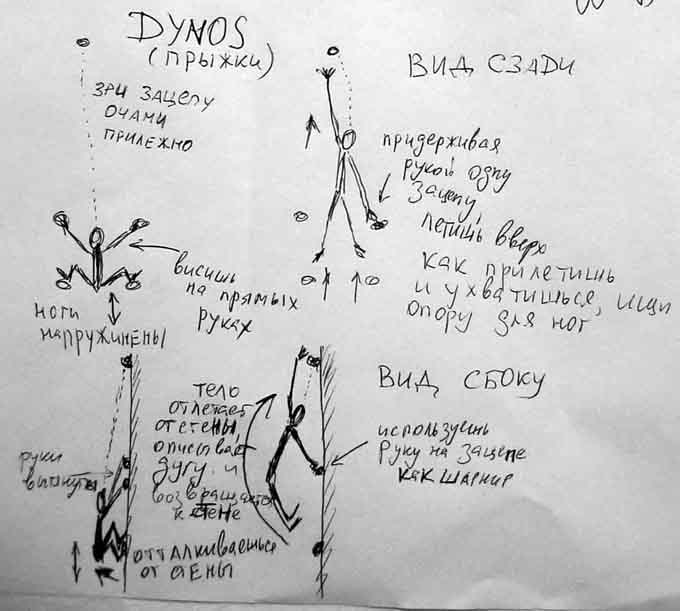 DYNOS
(ПРЫЖКИ)
ВИД СЗАДИ
ЗРИ ЗАЦЕПУ
ОЧАМИ
ПРИЛЕЖНО
ПРИДЕРЖИВАЯ
РУКОЙ ОДНУ
ЗАЦЕПУ,
ЛЕТИШЬ ВВЕРХ
КАК ПРИЛЕТИШЬ
И УХВАТИШЬСЯ, ИЩИ
ОПОРУ ДЛЯ НОГ
ВИСИШЬ
НА ПРЯМЫХ
РУКАХ
НОГИ
НАПРУЖИНЕНЫ
ВИД СБОКУ
ТЕЛО
ОТЛЕТАЕТ
ОТ СТЕНЫ,
ОПИСЫВАЕТ
ДУГУ И
ВОЗВРАЩАЕТСЯ
К СТЕНЕ
ИСПОЛЬЗУЕШЬ
РУКУ НА ЗАЦЕПЕ
КАК ШАРНИР
РУКИ
ВЫТЯНУТЫ
ОТТАЛКИВАЕШЬСЯ
ОТ СТЕНЫ